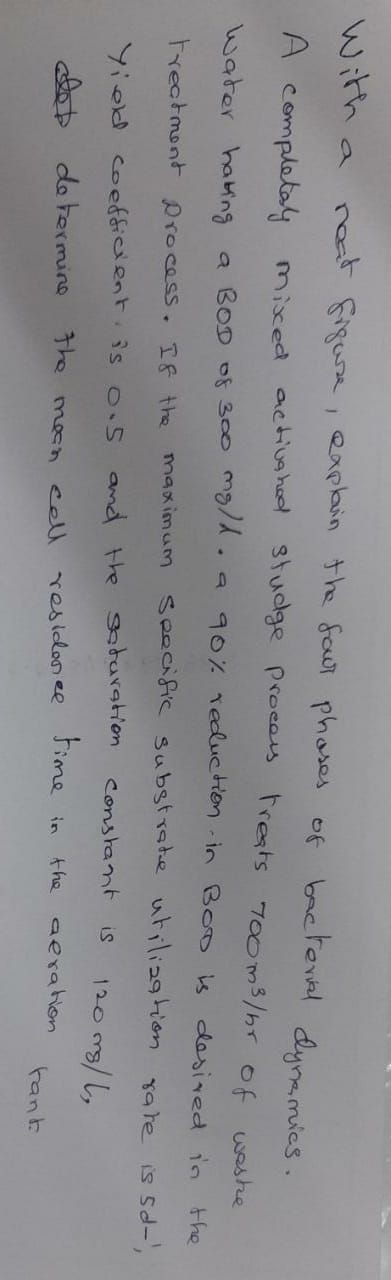 With a neat figure, explain the four phases of bacterial dynamics.
A completely mixed activated sludge process treats 700m³/hr of waste
Water having a BOD of 300 mg/l. a 90% reduction in BOD is desired in the
treatment process. If the maximum specific substrate utilization rate is 5d-¹,
Yield coefficient is 0.5 and the saturation constant is 120 mg/l,
determine the mean cell residence time in the aeration tank.